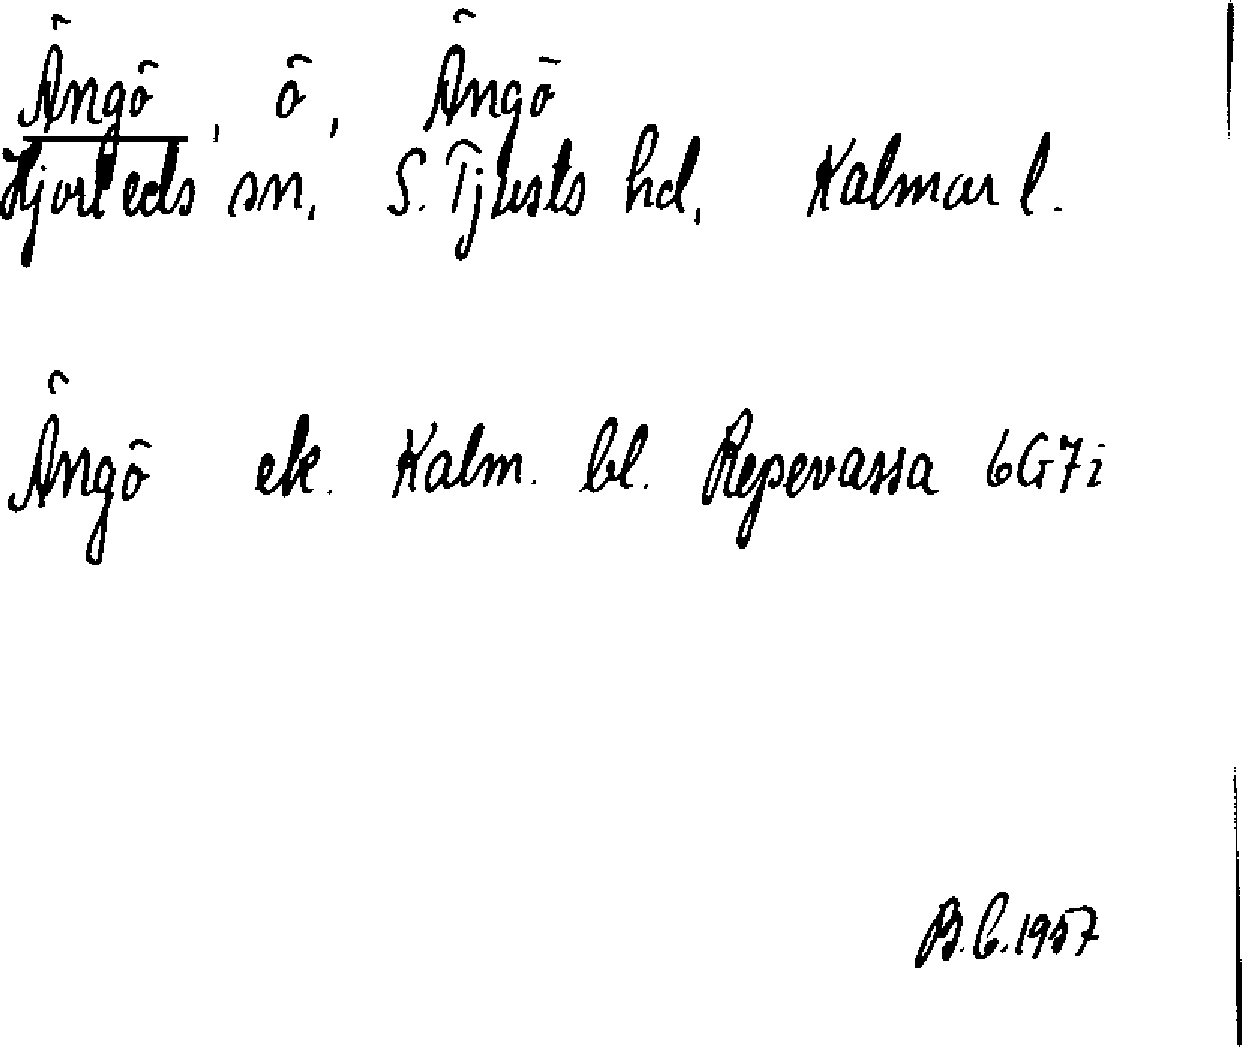 Ängö, ö, Ängö
Hjorteds sn, S. Tjusts hd, Kalmar l.
Ängö ek. Kalm. bl. Repevassa 6G7i
B.C. 1957